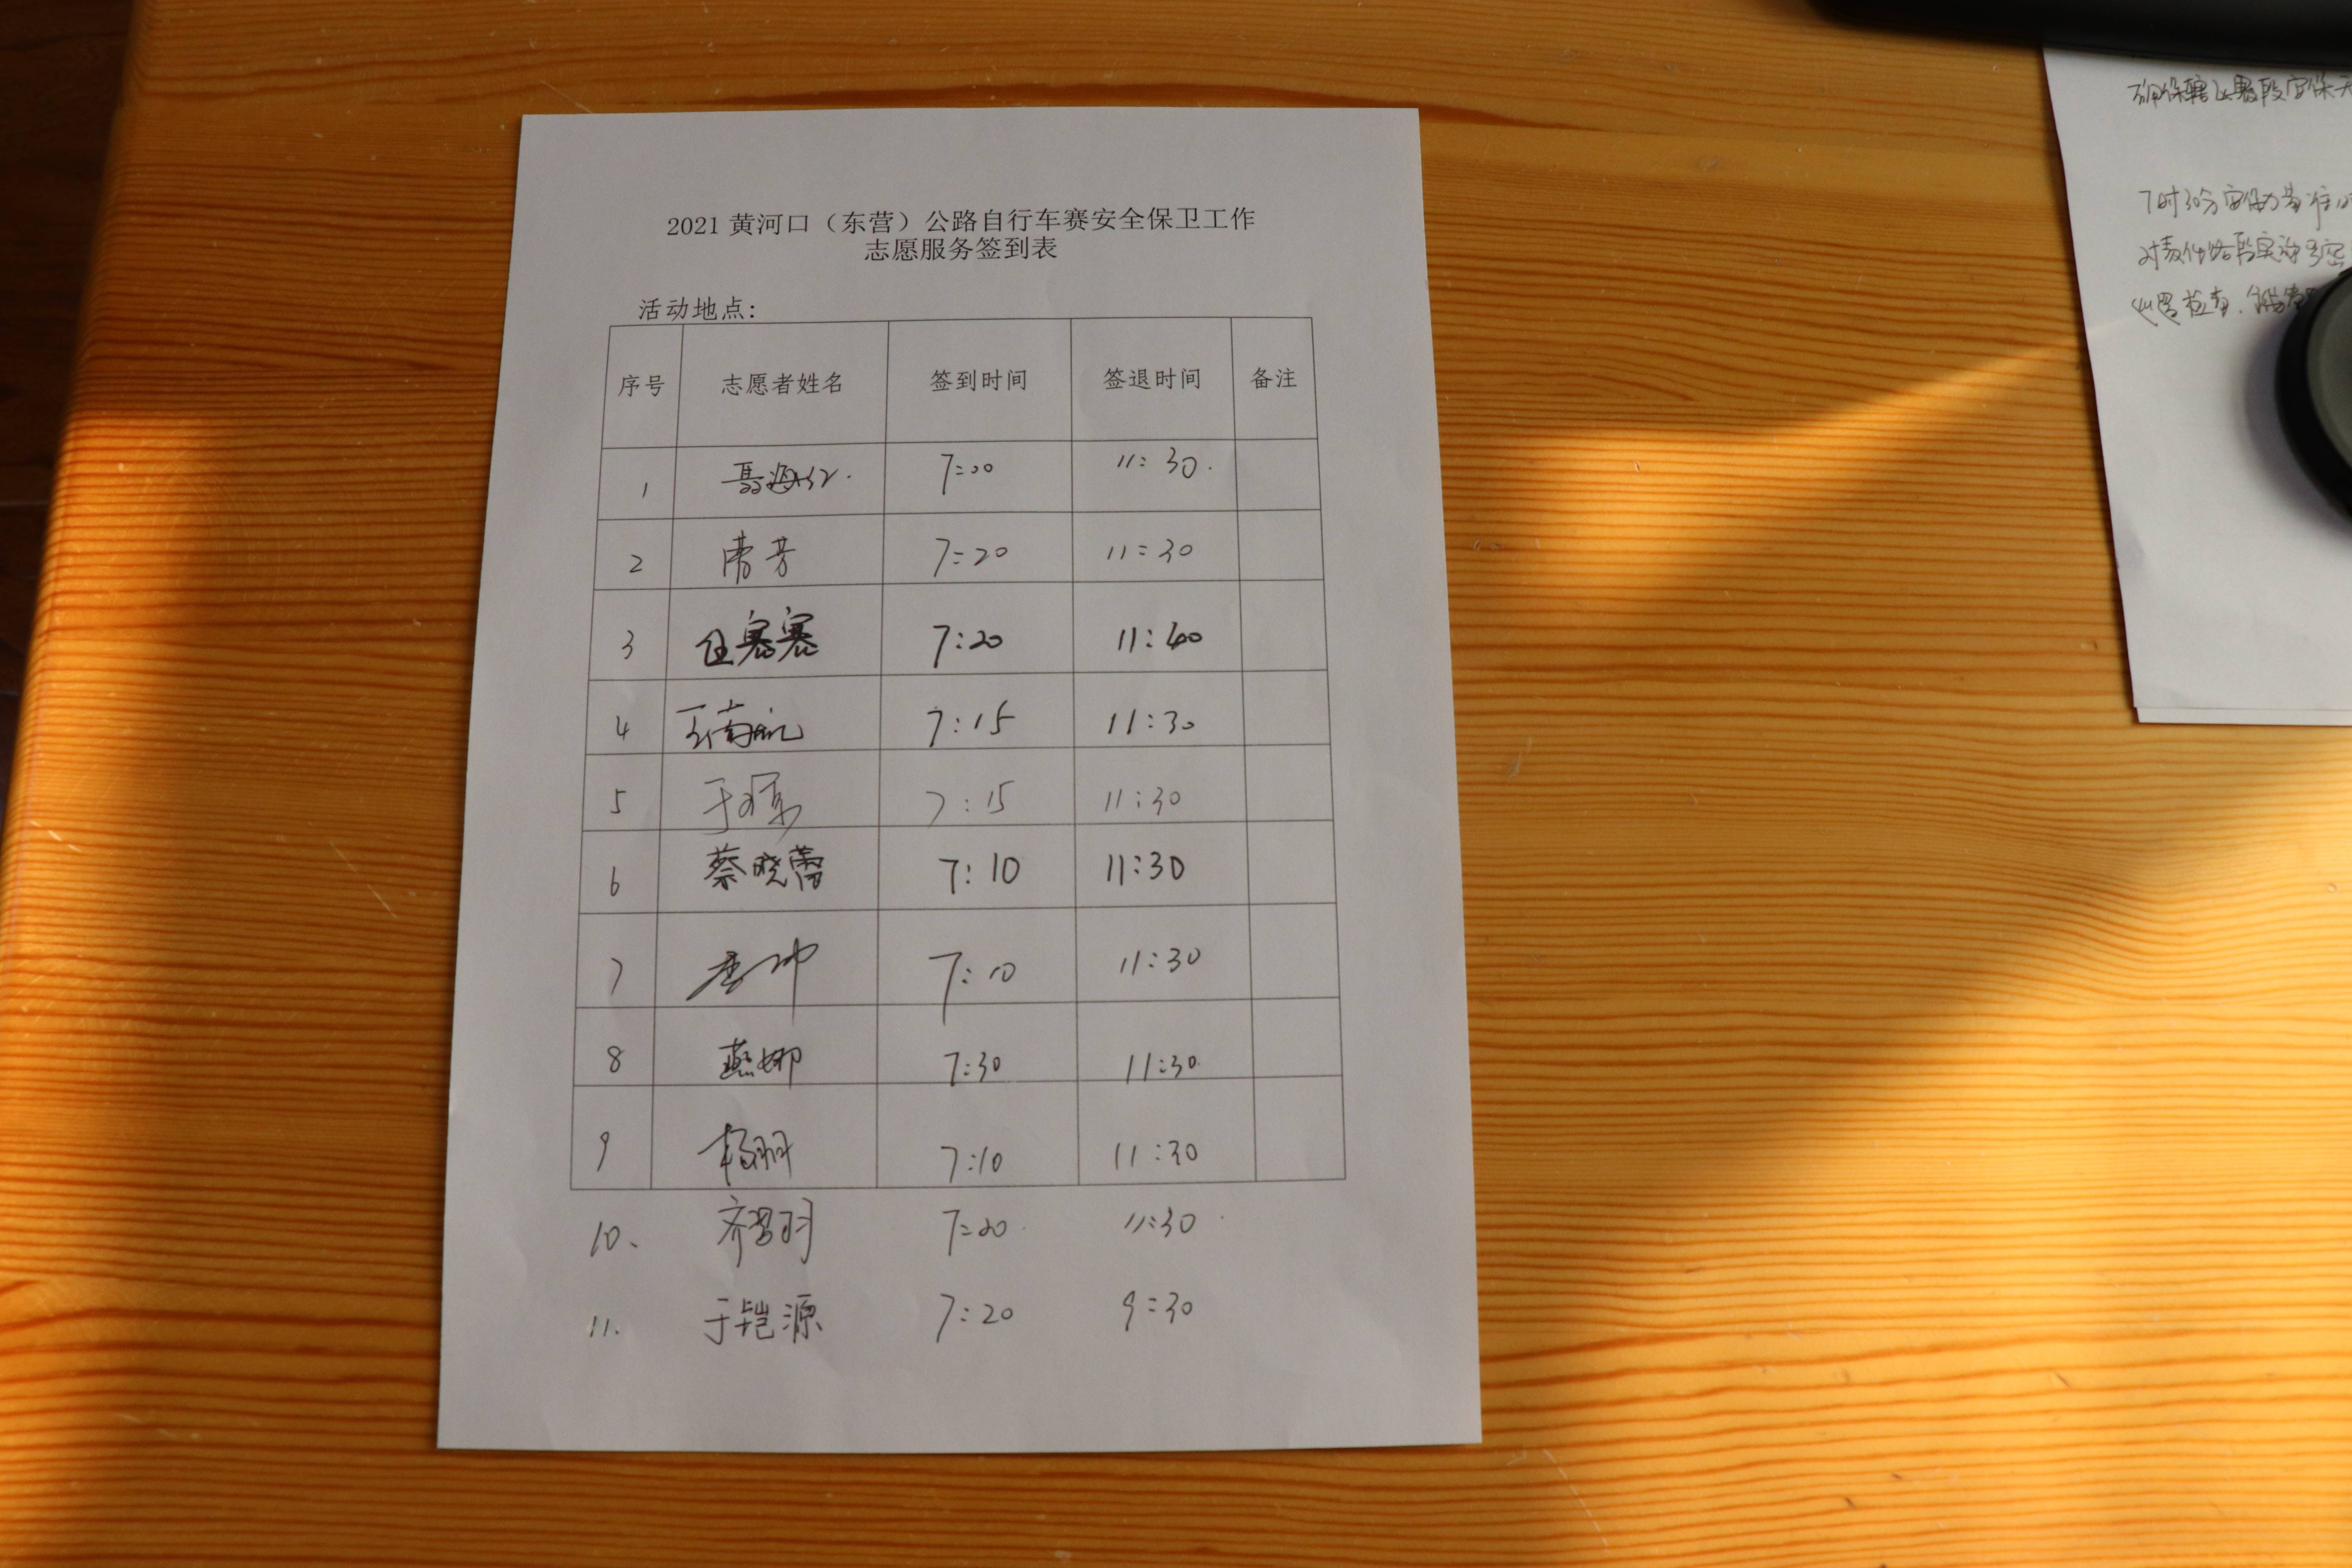 2021 黄河口（东营）公路自行车赛安全保卫工作
志愿服务签到表
活动地点:
序号 志愿者姓名 签到时间 签退时间 备注
1 7:00 11:30.
2 曹芳 7:20 11:30
3 7:20 11:40
4 王南航 7:15 11:30
5 于 7:15 11:30
6 蔡晓蕾 7:10 11:30
7 7:10 11:30
8 燕娜 7:30 11:30
9 杨羽 7:10 11:30
10、 齐 羽 7:20 11:30
11. 于铠源 7:20 9:30
7时30分